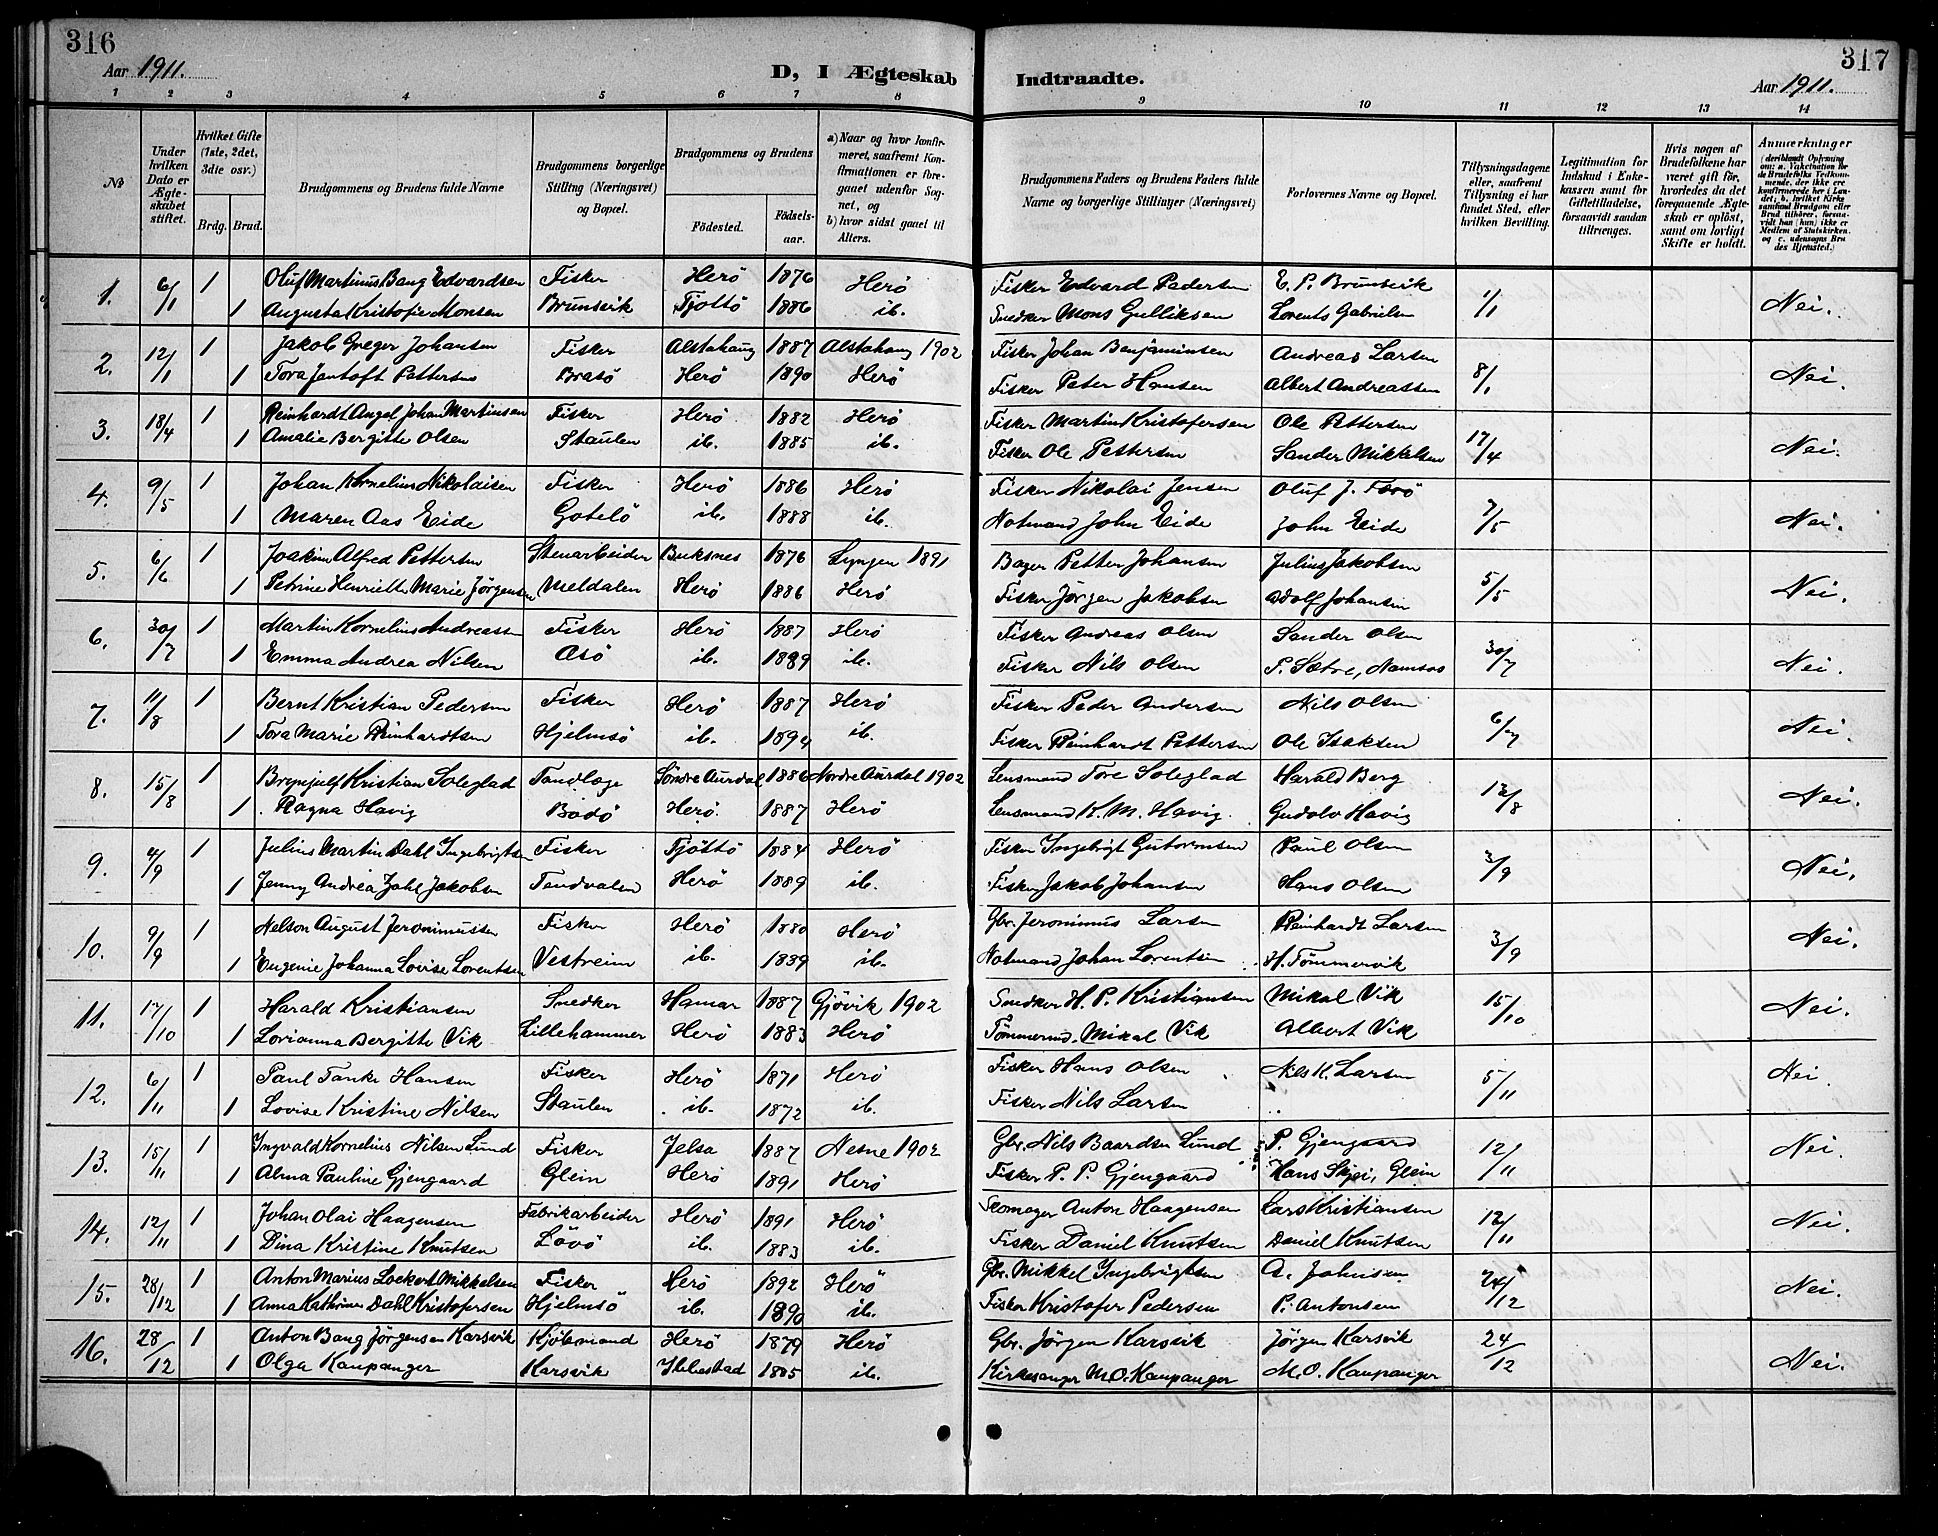 316
Aar 1911.
D, I Ægteskab
Indtraadte.
317
Aar 1911.
1 2 3 4 5 6 7 8 9 10 11 12 13 14
No
Under hvilken Dato er Ægteskabet stiftet.
Hvilket Gifte (1ste, 2det, 3die osv.)
Brdg. Brud.
Brudgommens og Brudens fulde Navne
Brudgommens borgerlige Stilling (Næringsvei) og Bopæl.
Brudgommens og Brudens
Fødested.
Fødsels-aar.
a) Naar og hvor konfirmeret, saafremt Konfirmationen er foregaaet udenfor Sognet, og
b) hvor sidst gaaet til Alters.
Brudgommens Faders og Brudens Faders fulde Navne og borgerlige Stillinger (Næringsvei)
Forlovernes Navne og Bopæl.
Tillysningsdagene eller, saafremt Tillysning ei har fundet Sted, efter hvilken Bevilling.
Legitimation for Indskud i Enkekassen samt for Giftetilladelse, forsaavidt saadan tiltrænges.
Hvis nogen af Brudefolkene har været gift før, hvorledes da det foregaaende Ægteskab er opløst, samt om lovligt Skifte er holdt.
Anmærkninger
(deriblandt Oplysning om: a. Vakcination for de Brudefolks Vedkommende, der ikke ere konfirmerede her i Landet; b. hvilket Kirkesamfund Brudgom eller Brud tilhører, forsaavidt han (hun) ikke er Medlem af Statskirken, og c. udensogns Brudes Hjemsted.
1. 6/1 1 Oluf Martinus Bang Edvardsen Fisker Herö 1876 Herö Fisker Edvard Pedersen E. P. Brunsvik 1/1 Nei.
1 Augusta Kristofie Monsen Brunsvik Tjottö 1886 ib. Snedker Mons Gulliksen Lorents Gabrielsen
2. 12/1 1 Jakob Greger Johansen Fisker Alstahaug 1887 Alstahaug 1902 Fisker Johan Benjaminsen Andreas Larsen 8/1 Nei.
1 Tora Jentoft Pettersen Brasö Herö 1890 Herö Fisker Peter Hansen Albert Andreassen
3. 18/4 1 Reinhardt Angel Johan Martinsen Fisker Herö 1882 Herö Fisker Martin Kristofersen Ole Pettersen 17/4 Nei.
1 Amalie Bergitte Olsen Staulen ib. 1885 ib. Fisker Ole Pettersen Sander Mikkelsen
4. 9/5 1 Johan Kornelius Nikolaisen Fisker Herö 1886 Herö Fisker Nikolai Jensen Oluf J. Færö 7/5 Nei.
1 Maren Aas Eide Gotelö ib. 1888 ib. Notmand John Eide John Eide
5. 6/6 1 Joakim Alfred Pettersen Stenarbeider Buksnes 1876 Lyngen 1891 Bager Petter Johansen Julius Jakobsen 5/5 Nei.
1 Petrine Henriette Marie Jörgensen Meldalen Herö 1886 Herö Fisker Jörgen Jakobsen Adolf Johansen
6. 30/7 1 Martin Kornelius Andreassen Fisker Herö 1887 Herö Fisker Andreas Olsen Sander Olsen 30/7 Nei.
1 Emma Andrea Nilsen Asö ib. 1889 ib. Fisker Nils Olsen P. Sætre, Namsos
7. 11/8 1 Bernt Kristian Pedersen Fisker Herö 1887 Herö Fisker Peder Andersen Nils Olsen 6/7 Nei.
1 Tora Marie Reinhardtsen Hjelmsö ib. 1894 ib. Fisker Reinhardt Pettersen Ole Isaksen
8. 15/8 1 Brynjulf Kristian Soleglad Tandlæge Söndre Aurdal 1886 Nordre Aurdal 1902 Lensmand Tore Soleglad Harald Berg 13/8 Nei.
1 Ragna Havig Bodö Herö. 1887 Herö Lensmand K. M. Havig. Gudolv Havig
9. 4/9 1 Julius Martin Dahl Ingebrigtsen Fisker Tjöttö 1884 Herö Fisker Ingebrigt Gutormsen Paul Olsen 3/9 Nei.
1 Jenny Andrea Zahl Jakobsen Tendvalen Herö 1889 ib. Fisker Jakob Johansen Hans Olsen
10. 9/9 1 Nelson August Jeronimussen Fisker Herö 1880 Herö Gbr. Jeronimus Larsen Reinhardt Larsen 3/9 Nei.
1 Eugenie Johanna Lovise Lorentsen Vestreim ib. 1889 ib. Notmand Johan Lorentsen H. Tömmervik
11. 17/10 1 Harald Kristiansen Snedker Hamar 1887 Gjövik 1902 Snedker H. P. Kristiansen Mikal Vik 15/10 Nei.
1 Lovianna Bergitte Vik Lillehammer Herö 1883 Herö Tömmermd. Mikal Vik Albert Vik
12. 6/11 1 Paul Tanke Hansen Fisker Herö 1871 Herö Fisker Hans Olsen Nils K. Larsen 5/11 Nei.
1 Lovise Kristine Nilsen Staulen ib. 1872 ib. Fisker Nils Larsen
13. 15/11 1 Ingvald Kornelius Nilsen Lund Fisker Jelsa 1887 Nesne 1902 Gbr. Nils Baardsen Lund P. Gjengaard 12/11 Nei.
1 Alma Pauline Gjengaard Glein Herö 1891 Herö Fisker P. P. Gjengaard Hans Skjei, Glein
14. 12/11 1 Johan Olai Haagensen Fabrikarbeider Herö 1891 Herö Skomager Anton Haagensen Lars Kristiansen 12/11 Nei.
1 Dina Kristine Knutsen Lövö ib. 1883 ib. Fisker Daniel Knutsen Daniel Knutsen
15. 28/12 1 Anton Marius Lockert Mikkelsen Fisker Herö 1892 Herö Gbr. Mikkel Ingebrigtsen A. Johnsen 24/12 Nei.
1 Anna Kathrine Dahl Kristofersen Hjelmsö ib. 1890 ib. Fisker Kristofer Pedersen P. Antonsen
16. 28/12 1 Anton Bang Jörgensen Karsvik Kjöbmand Herö 1879 Herö Gbr. Jörgen Karsvik Jörgen Karsvik 24/12 Nei.
1 Olga Kaupanger Karsvik Ibbestad 1885 ib. Kirkesanger M. O. Kaupanger M. O. Kaupanger